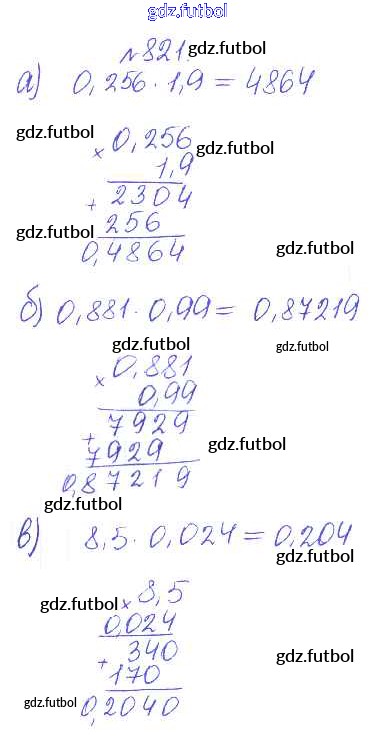 gdz.futbol
№821. gdz.futbol
а) 0,256 · 1,9 = 4864
gdz.futbol × 0,256 gdz.futbol
1,9
+ 2304
gdz.futbol 256 gdz.futbol
0,4864
б) 0,881 · 0,99 = 0,87219
gdz.futbol gdz.futbol
× 0,881
0,99
+ 7929
7929 gdz.futbol
0,87219
gdz.futbol
в) 8,5 · 0,024 = 0,204
gdz.futbol
gdz.futbol × 8,5
0,024
+ 340 gdz.futbol
170
gdz.futbol 0,2040 gdz.futbol